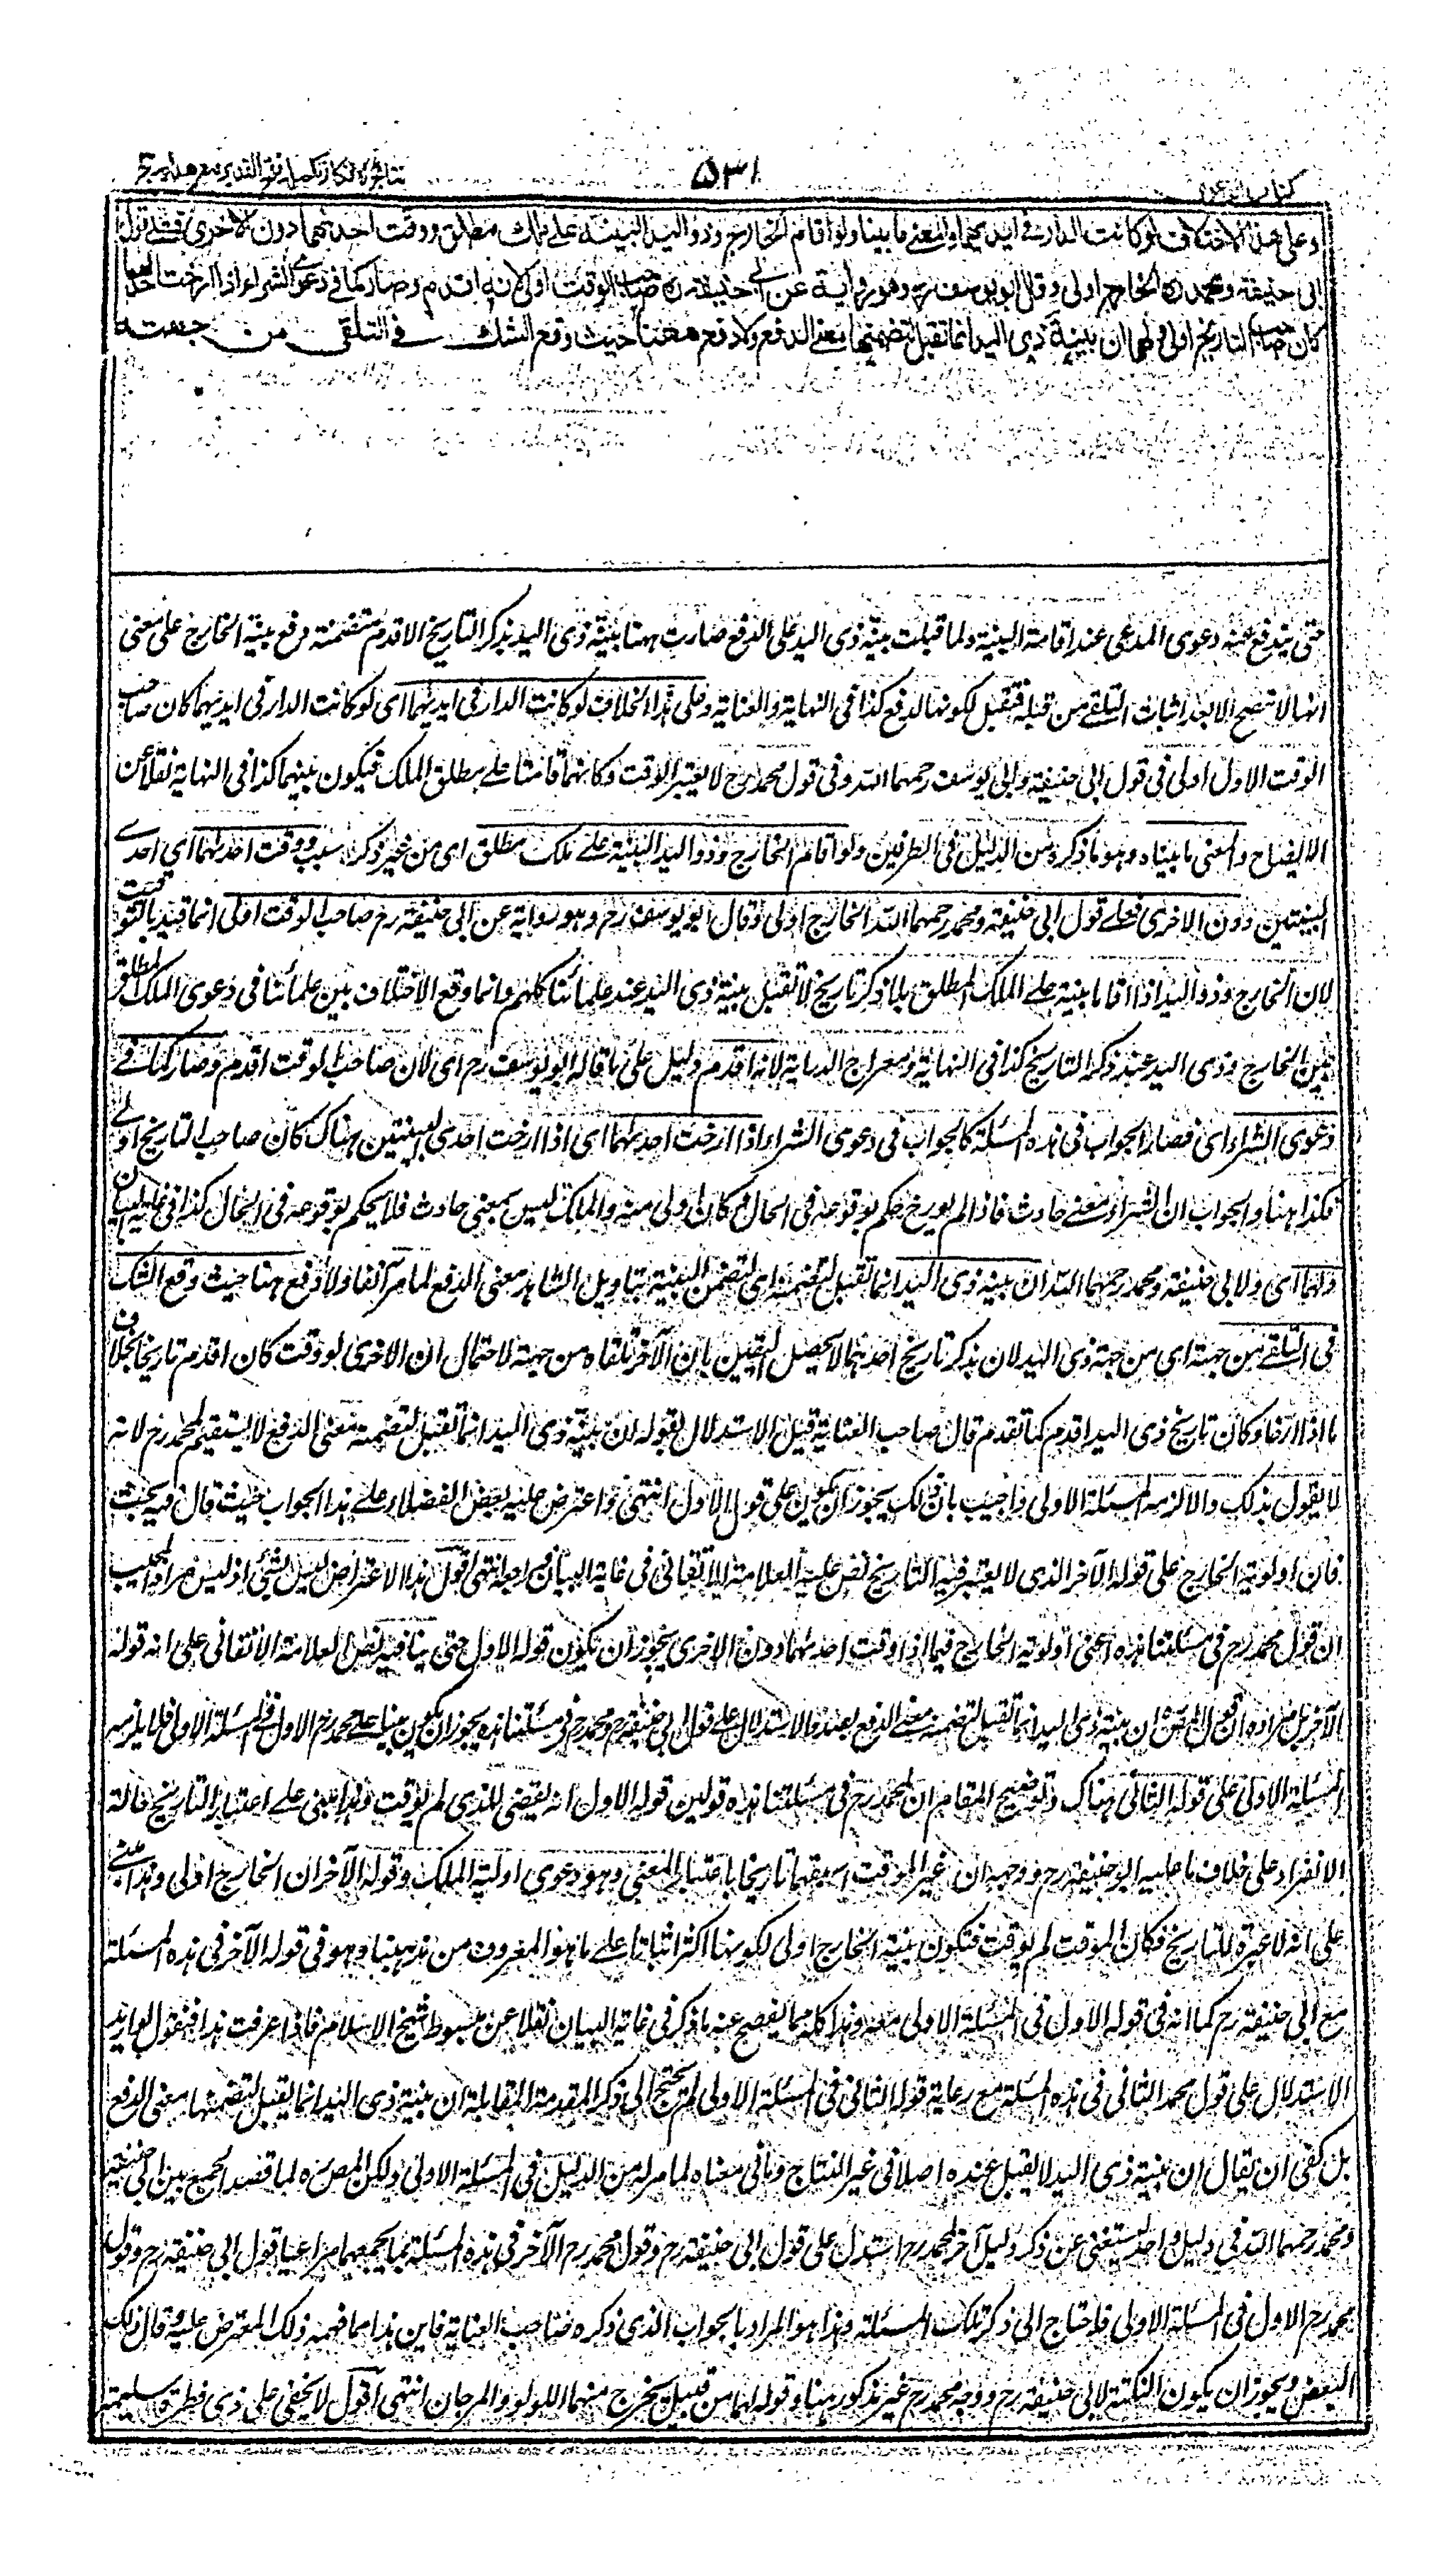 كتاب الدعوى
٥٣١
نتائج الافكار تكملة فتح القدير مع هداية ج
وعلى هذا الاختلاف لو كانت الدار فى ايديهما والمعنى ما بينا ولو اقام الخارج وذو اليد البينة على ملك مطلق ووقت احدٰهما دون الاخرى فعلى قول
ابى حنيفة ومحمد ره الخارج اولى وقال ابو يوسف ره وهو رواية عن ابى حنيفة ره صاحب الوقت اولى لانه اقدم وصار كما فى دعوى الشراء اذا ارخت احدٰهما
كان صاحب التاريخ اولى ولهما ان بينة ذى اليد انما تقبل لتضمنها معنى الدفع ولا دفع ههنا حيث وقع الشك فى التلقى من جهته
حتى يندفع عنه دعوى المدعى عند اقامة البينة ولما قبلت بينة ذى اليد على الدفع صارت ههنا بينة ذى اليد بذكر التاريخ الاقدم متضمنة دفع بينة الخارج على معنى
انها لا تصح الا بعد اثبات التلقى من قبله فتقبل لكونها للدفع كذا فى النهاية والعناية وعلى هذا الخلاف لو كانت الدار فى ايديهما اى لو كانت الدار فى ايديهما كان صاحب
الوقت الاول اولى فى قول ابى حنيفة وابى يوسف رحمهما الله وفى قول محمد رح لا يعتبر الوقت وكانهما قامتا على مطلق الملك فيكون بينهما كذا فى النهاية نقلا عن
الايضاح والمعنى ما بيناه وهو ما ذكره من الدليل فى الطرفين ولو اقام الخارج وذو اليد البينة على ملك مطلق اى من غير ذكر سبب ووقت احدٰهما اى احدى
البينتين دون الاخرى فعلى قول ابى حنيفة ومحمد رحمهما الله الخارج اولى وقال ابو يوسف رح وهو رواية عن ابى حنيفة رح صاحب الوقت اولى انما قيد بالتوقيت
لان الخارج وذو اليد اذا اقاما بينة على الملك المطلق بلا ذكر تاريخ لا تقبل بينة ذى اليد عند علمائنا كلهم وانما وقع الاختلاف بين علمائنا فى دعوى الملك المطلق
بين الخارج وذى اليد عند ذكر التاريخ كذا فى النهاية ومعراج الدراية لانه اقدم دليل على ما قاله ابو يوسف رح اى لان صاحب الوقت اقدم وصار كما فى
دعوى الشراء اى فصار الجواب فى هذه المسئلة كالجواب فى دعوى الشراء اذا ارخت احدٰهما اى اذا ارخت احدى البينتين هناك كان صاحب التاريخ اولى
فكذا ههنا والجواب ان الشراء معنى حادث فاذا لم يورخ حكم بوقوعه فى الحال فكان اولى منه والملك ليس بمعنى حادث فلا يحكم بوقوعه فى الحال كذا فى غاية البيان
ولهما اى ولابى حنيفة ومحمد رحمهما الله ان بينة ذى اليد انما تقبل لتضمنه اى لتضمن البينة بتاويل الشاهد معنى الدفع لما مر آنفا ولا دفع ههنا حيث وقع الشك
فى التلقى من جهته اى من جهة ذى اليد لان بذكر تاريخ احدٰهما لا يحصل اليقين بان الآخر تلقاه من جهته لاحتمال ان الاخرى لو وقتت كان اقدم تاريخا بخلاف
ما اذا ارخا وكان تاريخ ذى اليد اقدم كما تقدم قال صاحب العناية قيل الاستدلال بقوله ان بينة ذى اليد انما تقبل لتضمنه معنى الدفع لا يستقيم لمحمد رح لانه
لا يقول بذلك والا لزمه المسئلة الاولى واجيب بان ذلك يجوز ان يكون على قوله الاول انتهى واعترض عليه بعض الفضلاء على هذا الجواب حيث قال فيه بحث
فان اولوية الخارج على قوله الآخر الذى لا يعتبر فيه التاريخ نص عليه العلامة الاتقانى فى غاية البيان راجعه انتهى اقول هذا الاعتراض ليس بشئ اذ ليس مراد المجيب
ان قول محمد رح فى مسئلتنا هذه اعنى اولوية الخارج فيما اذا وقت احدٰهما دون الاخرى يجوز ان يكون قوله الاول حتى ينافيه نص العلامة الاتقانى على انه قوله
الآخر بل مراده ان قول المص ره ان بينة ذى اليد انما تقبل لتضمنه معنى الدفع بصدد الاستدلال على قول ابى حنيفة رح ومحمد رح فى مسئلتنا هذه يجوز ان يكون مبنيا على قول محمد رح الاول فى المسئلة الاولى فلا يلزمه
المسئلة الاولى على قوله الثانى هناك وتوضيح المقام ان لمحمد رح فى مسئلتنا هذه قولين قوله الاول انه يقضى للذى لم يوقت وهذا مبنى على اعتبار التاريخ حالة
الانفراد على خلاف ما عليه ابو حنيفة رح ووجهه ان غير الموقت اسبقهما تاريخا باعتبار المعنى وهو دعوى اولية الملك وقوله الآخر ان الخارج اولى وهذا مبنى
على انه لا عبرة للتاريخ فكان الموقت لم يوقت فتكون بينة الخارج اولى لكونها اكثر اثباتا على ما هو المعروف من مذهبنا وهو فى قوله الآخر فى هذه المسئلة
مع ابى حنيفة رح كما انه فى قوله الاول فى المسئلة الاولى معه وهذا كله مما يفصح عنه ما ذكر فى غاية البيان نقلا عن مبسوط شيخ الاسلام فاذا عرفت هذا فنقول لو اريد
الاستدلال على قول محمد الثانى فى هذه المسئلة مع رعاية قوله الثانى فى المسئلة الاولى لم يحتج الى ذكر المقدمة القائلة ان بينة ذى اليد انما يقبل لتضمنها معنى الدفع
بل كفى ان يقال ان بينة ذى اليد لا يقبل عنده اصلا فى غير النتاج وما فى معناه لما مر له من الدليل فى المسئلة الاولى ولكن المص ره لما قصد الجمع بين ابى حنيفة
ومحمد رحمهما الله فى دليل واحد ليستغنى عن ذكر دليل آخر لمحمد رح استدل على قول ابى حنيفة رح وقول محمد رح الآخر فى هذه المسئلة بما يجمعهما مراعيا قول ابى حنيفة رح وقول
محمد رح الاول فى المسئلة الاولى فاحتاج الى ذكر تلك المسئلة وهذا هو المراد بالجواب الذى ذكره صاحب العناية فاين هذا مما فهمه ذلك المعترض عليه وقال ذلك
البعض ويجوز ان يكون النكتة لابى حنيفة رح ووجه محمد رح غير مذكور ههنا وقوله لهما من قبيل يخرج منهما اللولو والمرجان انتهى اقول لا يخفى على ذى فطرة سليمة